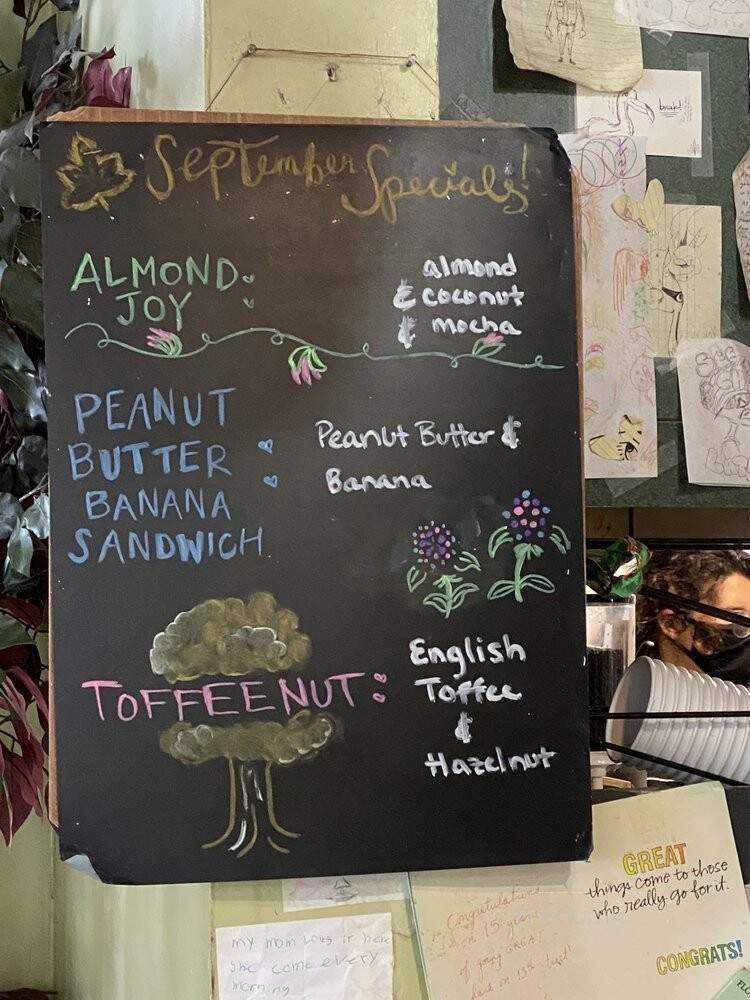 September Specials!
ALMOND JOY:
almond
& coconut
& mocha
PEANUT
BUTTER
BANANA
SANDWICH
:
Peanut Butter &
Banana
TOFFEENUT:
English
Toffee
&
Hazelnut
GREAT
things come to those
who really go for it.
CONGRATS!
Congratulations
on 15 years
of
my mom loves it here
She come every
morning